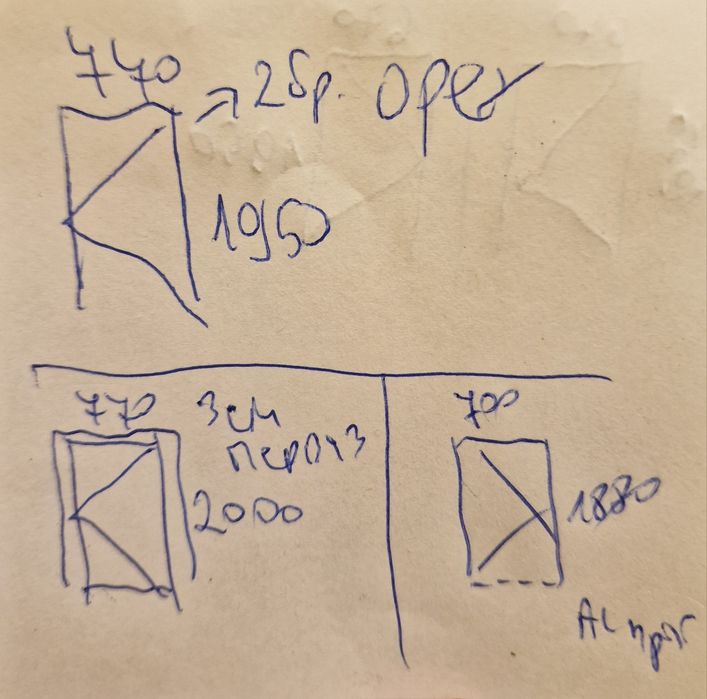 740
2бр. орех
1950
770
3см
перваз
2000
700
1880
AL праг